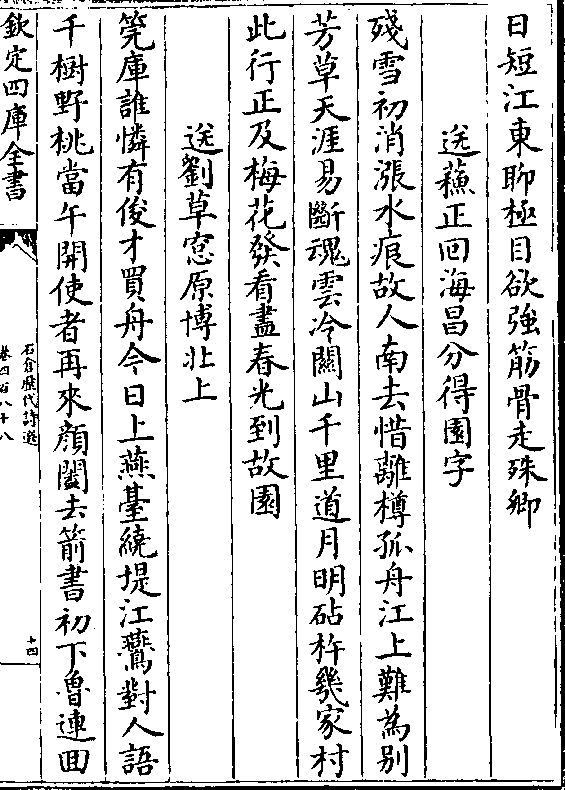 日短江東聊極目欲強筋骨走殊鄉
送蘓正囘海昌分得園字
殘雪初消漲水痕故人南去惜離樽孤舟江上難為别
芳草天涯易斷魂雲冷關山千里道月明砧杵幾家村
此行正及梅花發看盡春光到故園
送劉草窓原博北上
筦庫誰憐有俊才買舟今日上燕臺繞堤江鸎對人語
千樹野桃當午開使者再來顔闔去箭書初下魯連囘
欽定四庫全書
石倉歷代詩選
卷四百八十八
十四